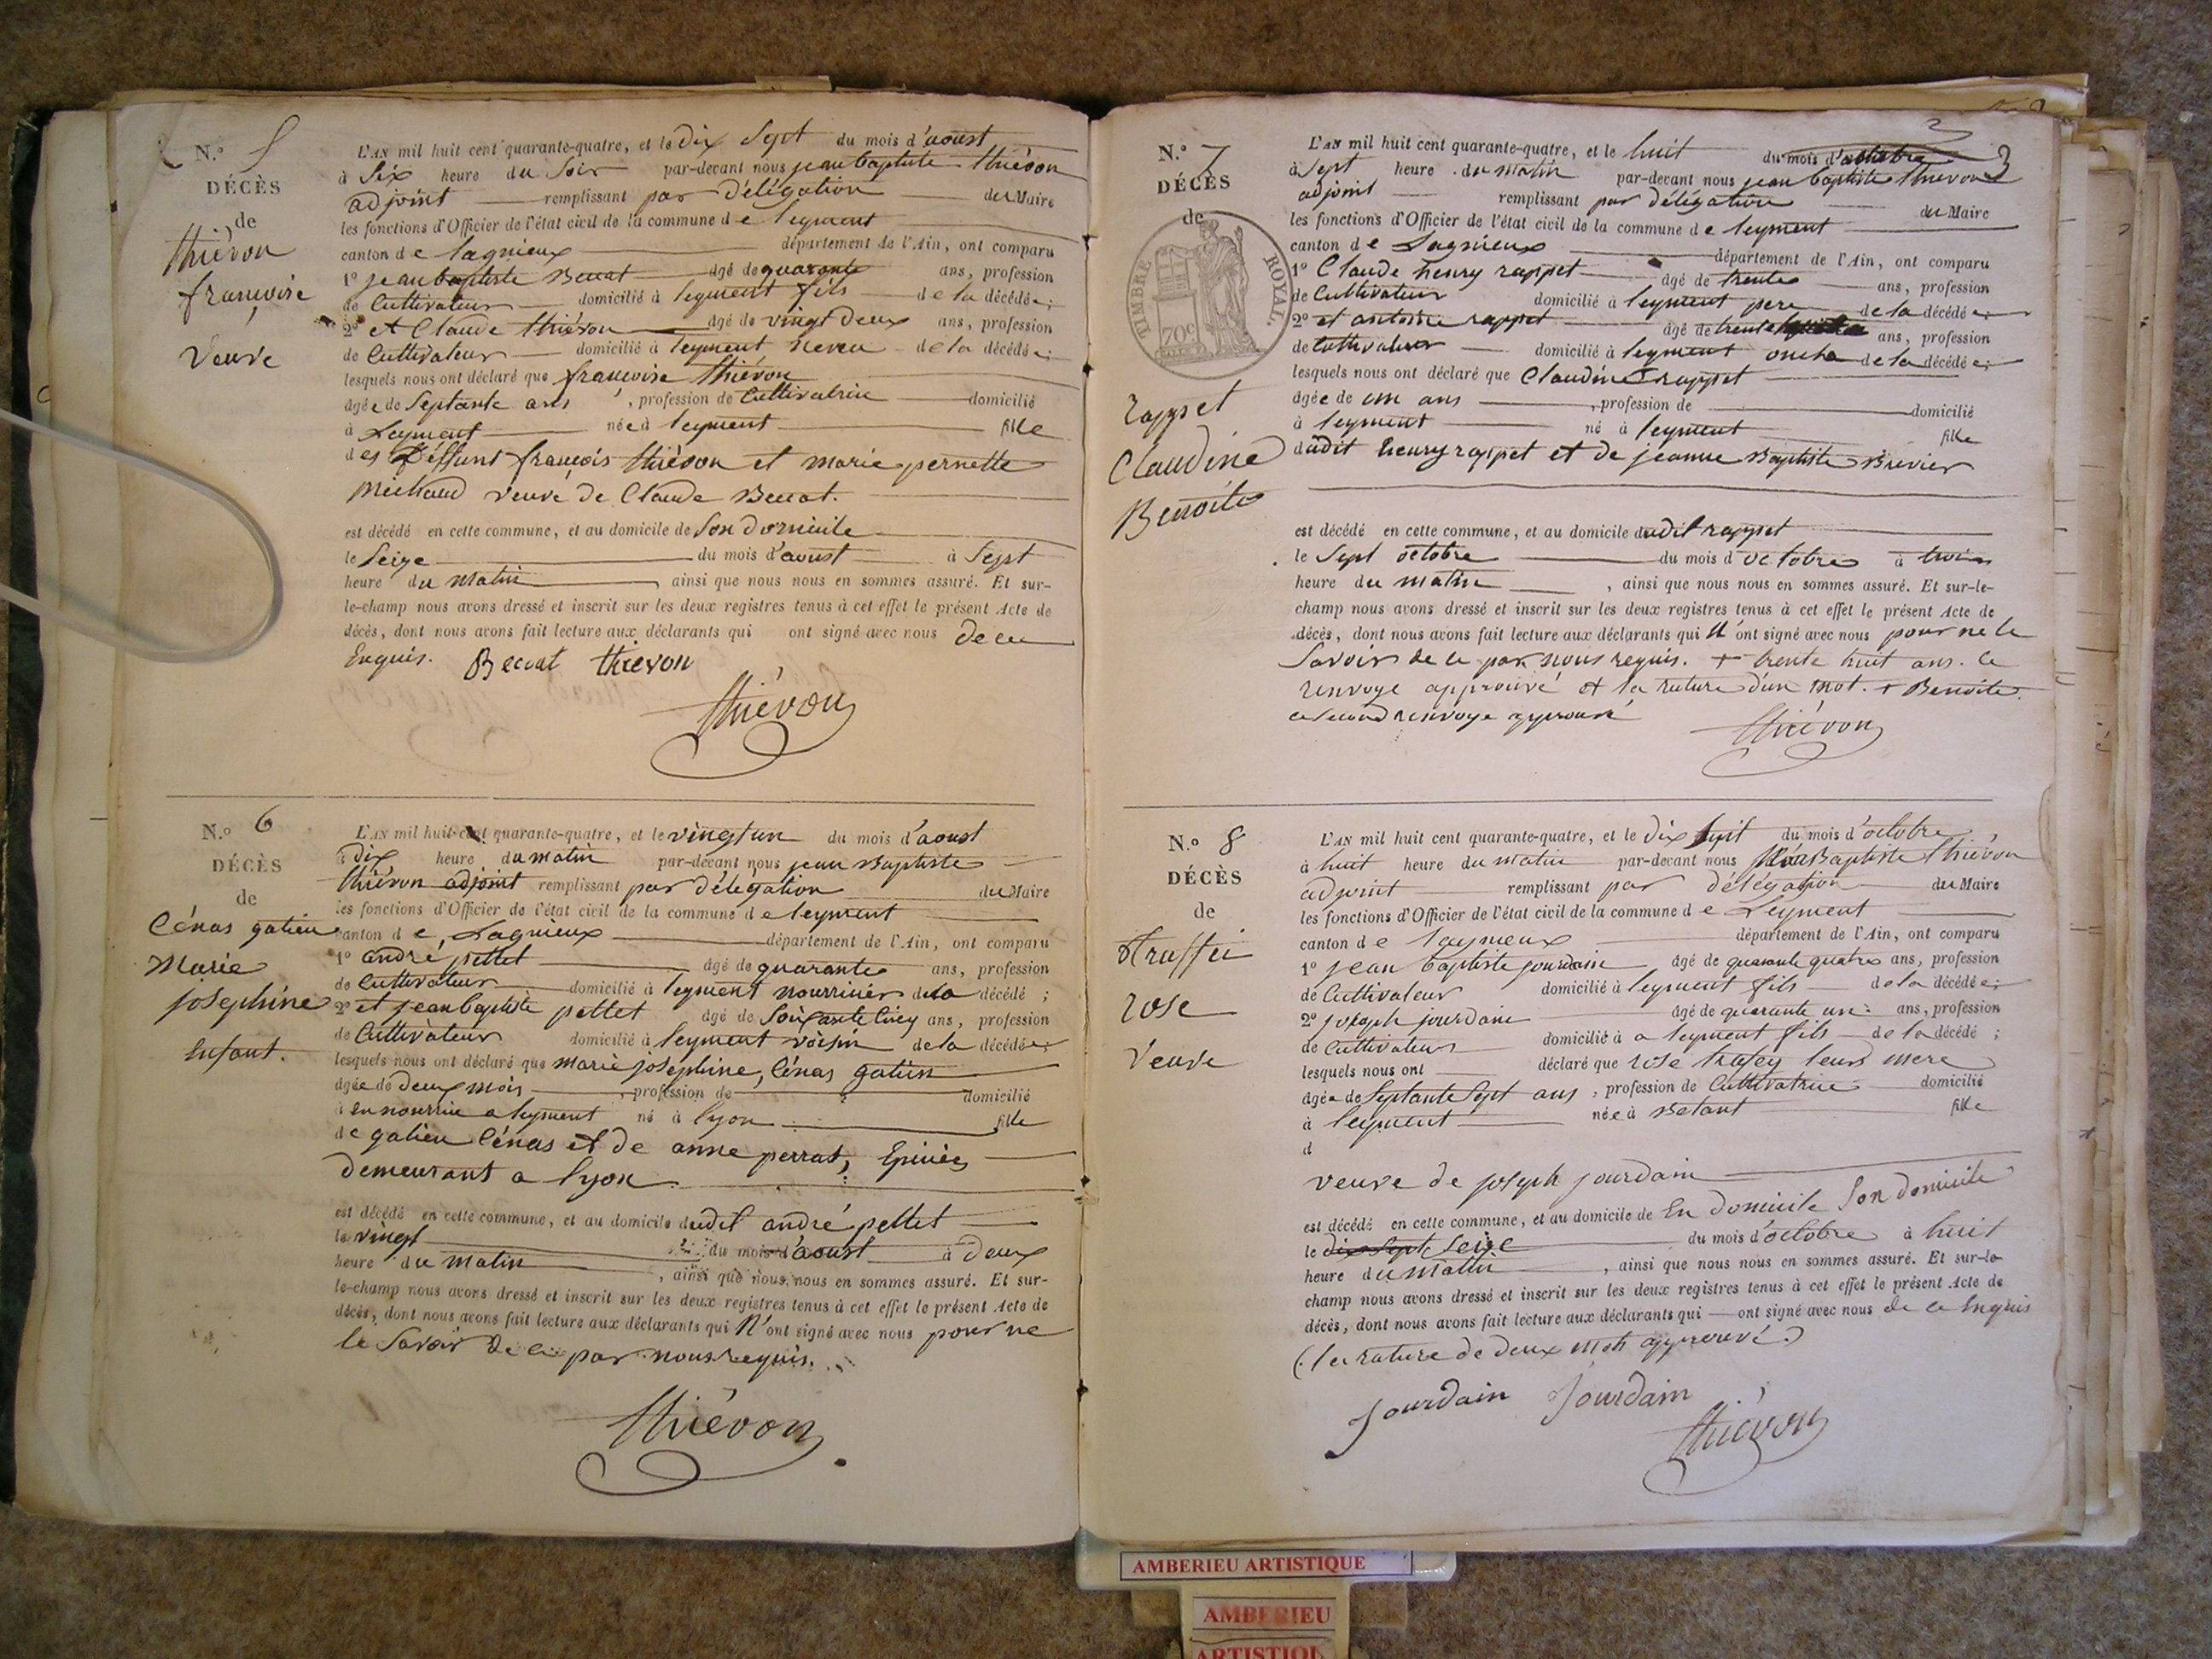 N.o 5
DÉCÈS
de
thiévon
françoise
veuve
L'AN mil huit cent quarante-quatre, et le dix Sept du mois d'aoust
à Six heure du Soir par-devant nous jean baptiste thiévon
adjoint remplissant par délégation du Maire
les fonctions d'Officier de l'état civil de la commune de leyment
canton de lagnieux département de l'Ain, ont comparu
1o jean baptiste Benat âgé de quarante ans, profession
de Cultivateur domicilié à leyment fils de la décédée;
2o et Claude thiévon âgé de vingt deux ans, profession
de Cultivateur domicilié à leyment neveu de la décédée;
lesquels nous ont déclaré que françoise thiévon
âgée de Septante ans, profession de Cultivatrice domicilié
à Leyment née à leyment fille
des Déffunt françois thiévon et marie pernette
michaud veuve de Claude Benat.
est décédé en cette commune, et au domicile de Son domicile
le Seize du mois d'aoust à Sept
heure du matin, ainsi que nous nous en sommes assuré. Et sur-
le-champ nous avons dressé et inscrit sur les deux registres tenus à cet effet le présent Acte de
décès, dont nous avons fait lecture aux déclarants qui ont signé avec nous de ce
Enquis. thievon
thiévon
N.o 6
DÉCÈS
de
Cénas galien
Marie
joséphine
Enfant.
L'AN mil huit cent quarante-quatre, et le vingt un du mois d'aoust
à dix heure du matin par-devant nous jean Baptiste
thiévon adjoint remplissant par délégation du Maire
les fonctions d'Officier de l'état civil de la commune de leyment
canton de Lagnieux département de l'Ain, ont comparu
1o andré pellet âgé de quarante ans, profession
de Cultivateur domicilié à leyment nourricier de la décédé;
2o et jean baptiste pellet âgé de Soixante Cinq ans, profession
de Cultivateur domicilié à leyment voisin de la décédée;
lesquels nous ont déclaré que marie joséphine, Cénas galien
âgée de deux mois, profession de domicilié
à en nourrice a leyment né à lyon fille
de galien Cénas et de anne perrat, Epiciers
demeurant a lyon
est décédé en cette commune, et au domicile dudit andré pellet
le vingt du mois d'aoust à deux
heure du matin, ainsi que nous nous en sommes assuré. Et sur-
le-champ nous avons dressé et inscrit sur les deux registres tenus à cet effet le présent Acte de
décès, dont nous avons fait lecture aux déclarants qui N'ont signé avec nous pour ne
le Savoir de ce par nous requis.
thiévon
3
N.o 7
DÉCÈS
de
TIMBRE ROYAL.
70c
rappet
Claudine
Benoite
L'AN mil huit cent quarante-quatre, et le huit du mois d'octobre
à Sept heure du matin par-devant nous jean baptiste thievon
adjoint remplissant par délégation du Maire
les fonctions d'Officier de l'état civil de la commune de leyment
canton de Lagnieux département de l'Ain, ont comparu
1o Claude henry rappet âgé de trente ans, profession
de Cultivateur domicilié à leyment pere de la décédée
2o et antoine rappet âgé de trente ans, profession
de Cultivateur domicilié à leyment oncle de la décédée;
lesquels nous ont déclaré que Claudine + rappet
âgée de un ans, profession de domicilié
à leyment né à leyment fille
dudit henry rappet et de jeanne Baptiste Brevier
est décédé en cette commune, et au domicile dudit rappet
le Sept octobre du mois d'octobre à trois
heure du matin, ainsi que nous nous en sommes assuré. Et sur-le-
champ nous avons dressé et inscrit sur les deux registres tenus à cet effet le présent Acte de
décès, dont nous avons fait lecture aux déclarants qui N'ont signé avec nous pour ne le
Savoir de ce par nous requis. + trente huit ans. ce
renvoye approuvé et la rature d'un mot. + Benoite
ce second renvoye approuvé
thiévon
N.o 8
DÉCÈS
de
Truffei
rose
veuve
L'AN mil huit cent quarante-quatre, et le dix huit du mois d'octobre
à huit heure du matin par-devant nous jean Baptiste thiévon
adjoint remplissant par délégation du Maire
les fonctions d'Officier de l'état civil de la commune de Leyment
canton de lagnieux département de l'Ain, ont comparu
1o jean baptiste jourdain âgé de quarante quatre ans, profession
de Cultivateur domicilié à leyment fils de la décédée;
2o joseph jourdain âgé de quarante un ans, profession
de Cultivateur domicilié à a leyment fils de la décédé;
lesquels nous ont déclaré que rose leurs mere
âgée de Septante Sept ans, profession de Cultivatrice domicilié
à leyment née à Betant fille
d
veuve de joseph jourdain
est décédé en cette commune, et au domicile de En domicile Son domicile
le dix Sept Seize du mois d'octobre à huit
heure du matin, ainsi que nous nous en sommes assuré. Et sur-le-
champ nous avons dressé et inscrit sur les deux registres tenus à cet effet le présent Acte de
décès, dont nous avons fait lecture aux déclarants qui ont signé avec nous de ce Enquis
(la rature de deux mots approuvé.)
Jourdain Jourdain
thiévon
AMBERIEU ARTISTIQUE
AMBERIEU
ARTISTIQU